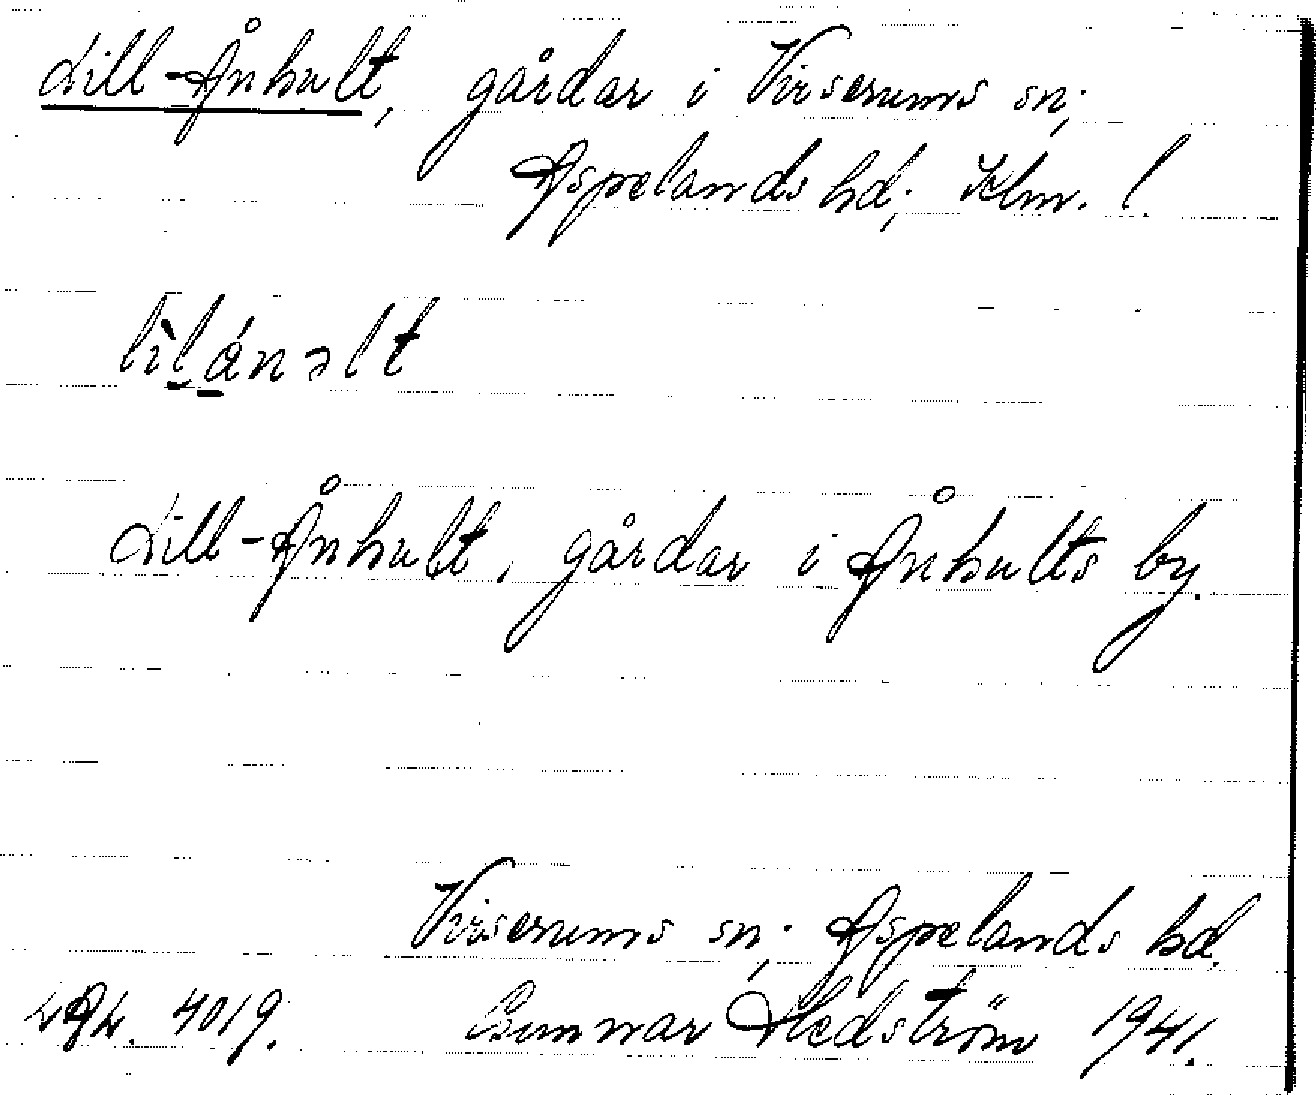 Lill-Ånhult, gårdar i Virserums sn;
Aspelands hd; Klm. l.
lìlánəlt
Lill-Ånhult, gårdar i Ånhults by.
Virserums sn; Aspelands hd.
4019. Gunnar Hedström 1941.